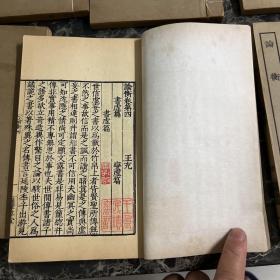 論衡
論衡卷第四
王充
書虛篇
變虛篇
書虛篇
世信虛妄之書以為載於竹帛上者皆賢聖所傳無
不然之事故信而是之諷而讀之睹真是之傳與虛
妄之書相違則并謂短書不可信用夫幽冥之實尚
可知沈隱之情尚可定顯文露書是非易見籠總并
傳非實事用精不專無思於事也夫世間傳書諸子
之語多欲立奇造異作驚目之論以駭世俗之人為
譎詭之書以著殊異之名傳書言延陵季子出游見